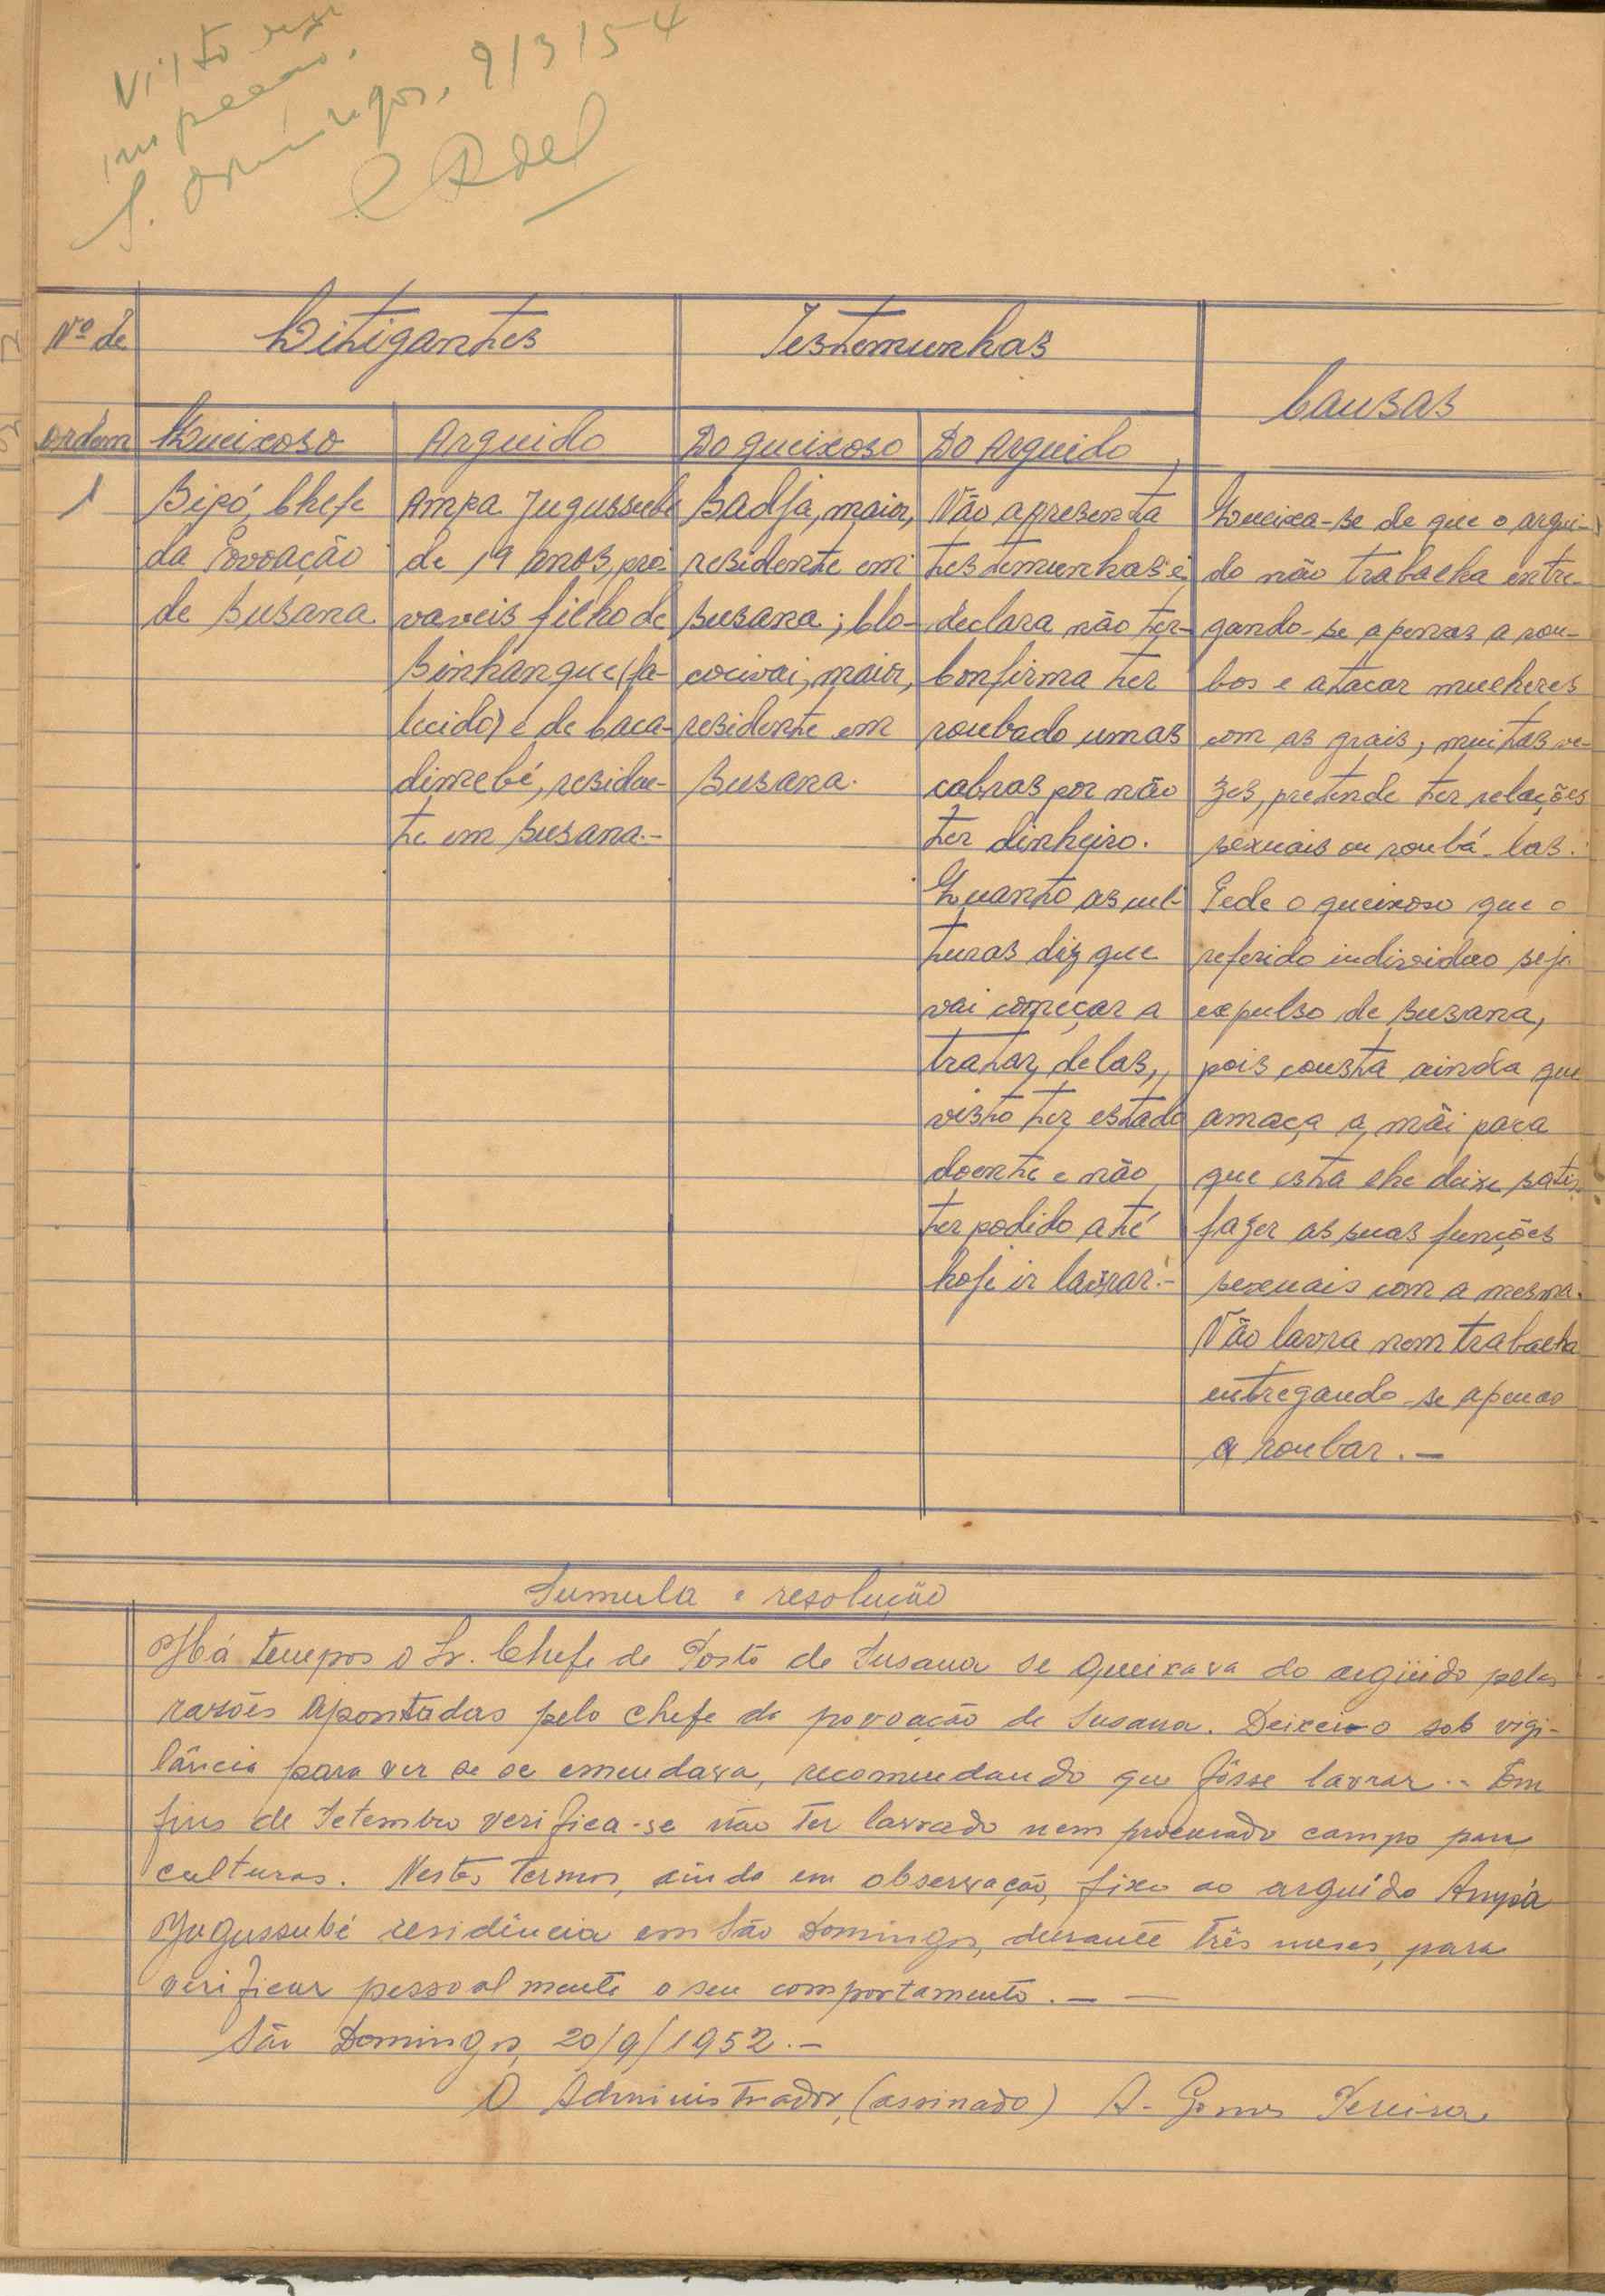 Visto em
inspecção.
S. Domingos, 9/3/54
Nº de
ordem
Litigantes
Testemunhas
Causas
Queixoso
Arguido
Do queixoso
Do Arguido
1
Bipó, Chefe
da Povoação
de Susana.
Ampa Jugussube
de 19 anos, pro-
vaveis filho de
Sinhangue (fa-
lecido) e de Caca-
dimebé, residen-
te em Susana.-
Badja, maior,
residente em
Susana; Clo-
cocivai, maior,
residente em
Susana.
Não apresenta
testemunhas e
declara não ter-
Confirma ter
roubado umas
cabras por não
ter dinheiro.
Quanto as cul-
turas diz que
vai começar a
tratar delas,
visto ter estado
doente e não
ter podido até
hoje ir lavrar.-
Queixa-se de que o argui-
do não trabalha entre-
gando-se apenas a rou-
bos e atacar mulheres
com as quais, muitas ve-
zes, pretende ter relações
sexuais ou roubá-las.
Pede o queixoso que o
referido individuo seja
expulso de Susana,
pois consta ainda que
amaça a mãi para
que esta lhe deixe satis-
fazer as suas funções
sexuais com a mesma.
Não lavra nem trabalha
entregando-se apenas
a roubar.—
Sumula e resolução
Há tempos o Sr. Chefe de Posto de Susana se queixava do argüido pelas
razões apontadas pelo chefe da povoação de Susana. Deixei-o sob vigi-
lância para ver se se emendava, recomendando que fôsse lavrar.- Em
fins de Setembro verifica-se não ter lavrado nem procurado campo para
culturas. Nestes termos, ainda em observação, fixo ao arguido Ampá
Jugussubé residência em São Domingos, durante três meses, para
verificar pessoalmente o seu comportamento.— —
São Domingos, 20/9/1952.-
O Administrador, (assinado) A. Gomes Pereira